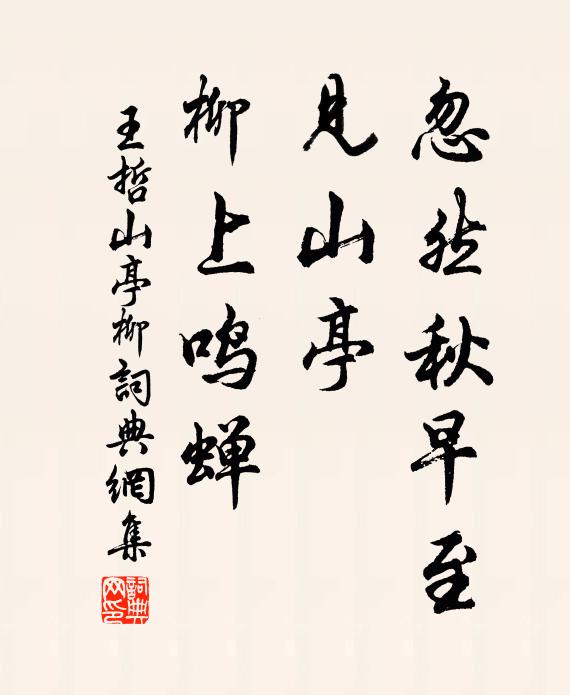 忽然秋早至
见山亭
柳上鸣蝉
王哲山亭柳詞典網集
詞典
网印